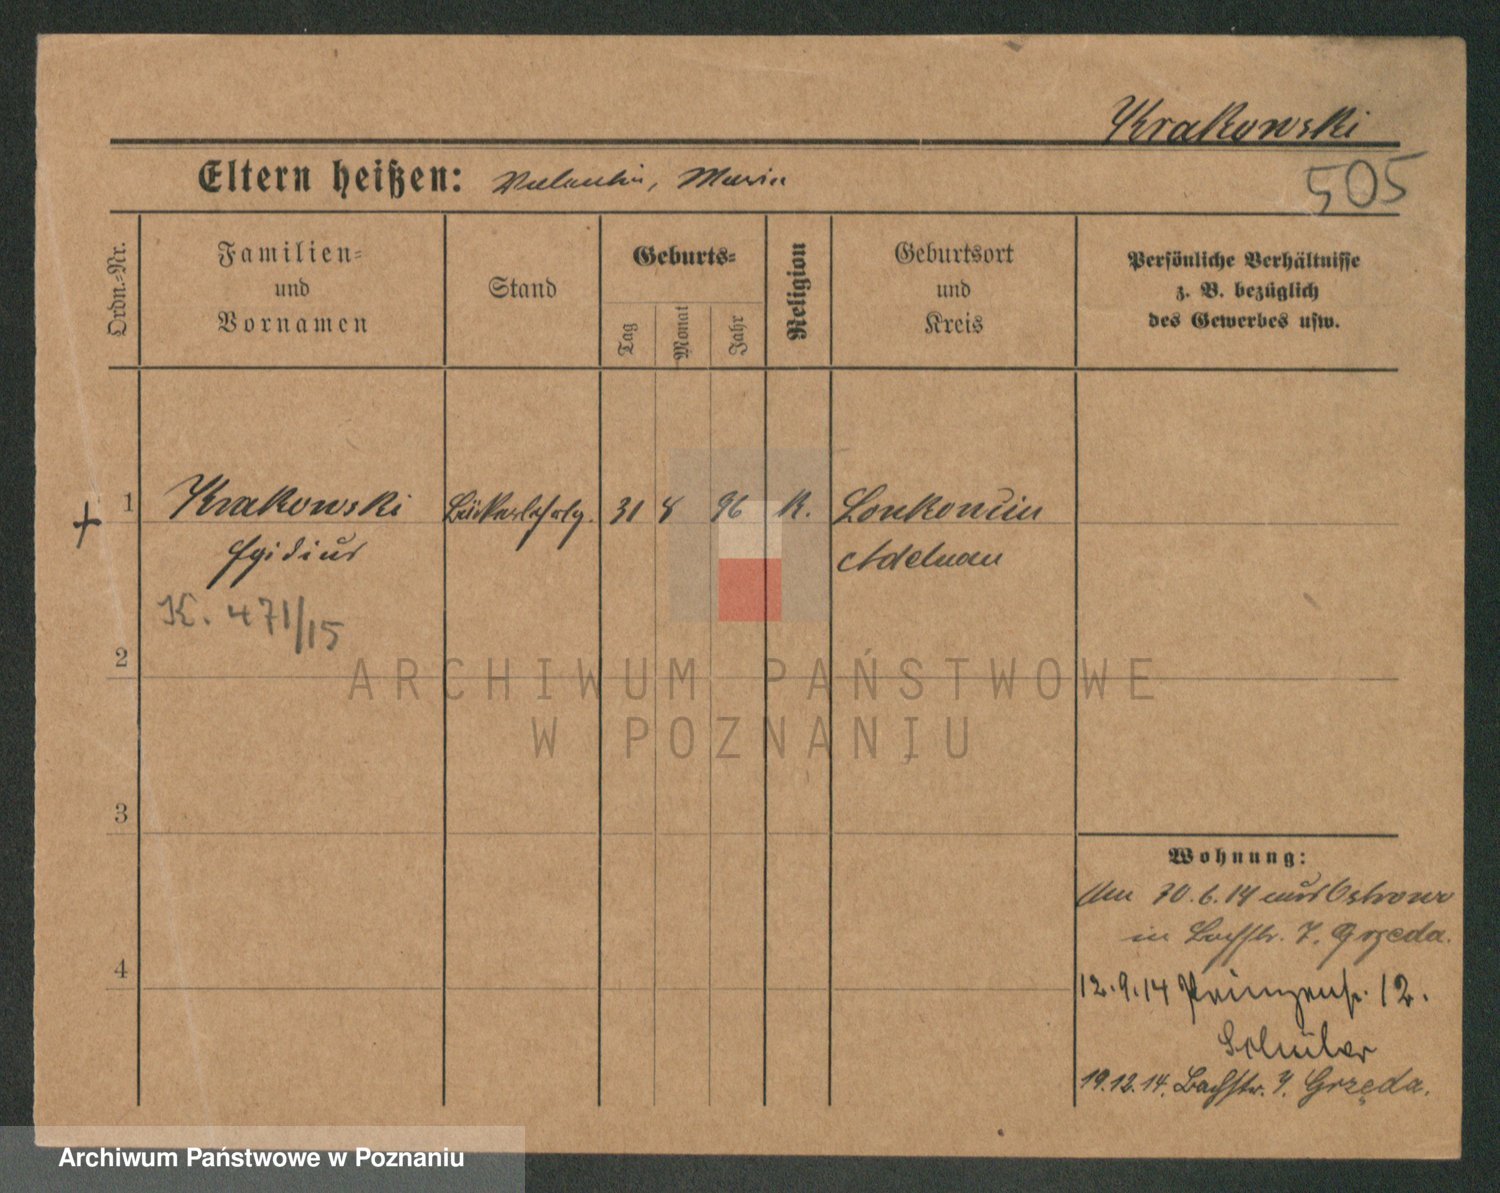 Krakowski
505
Eltern heißen: Valentin, Maria
Ordn.-Nr.
Familien=
und
Vornamen
Stand
Geburts=
Tag
Monat
Jahr
Religion
Geburtsort
und
Kreis
Persönliche Verhältnisse
z. B. bezüglich
des Gewerbes usw.
+ 1 Krakowski Bäckerlehrlg. 31 8 96 K.
Egidius Adelnau
K. 471/15
2
3
4
Wohnung:
Am 30.6.14 aus Ostrowo
in Bachstr. 7. Grzęda.
12.9.14 Prinzenstr. 12.
Schüler
19.12.14. Bachstr. 7. Grzęda.
ARCHIWUM PAŃSTWOWE
W POZNANIU
Archiwum Państwowe w Poznaniu